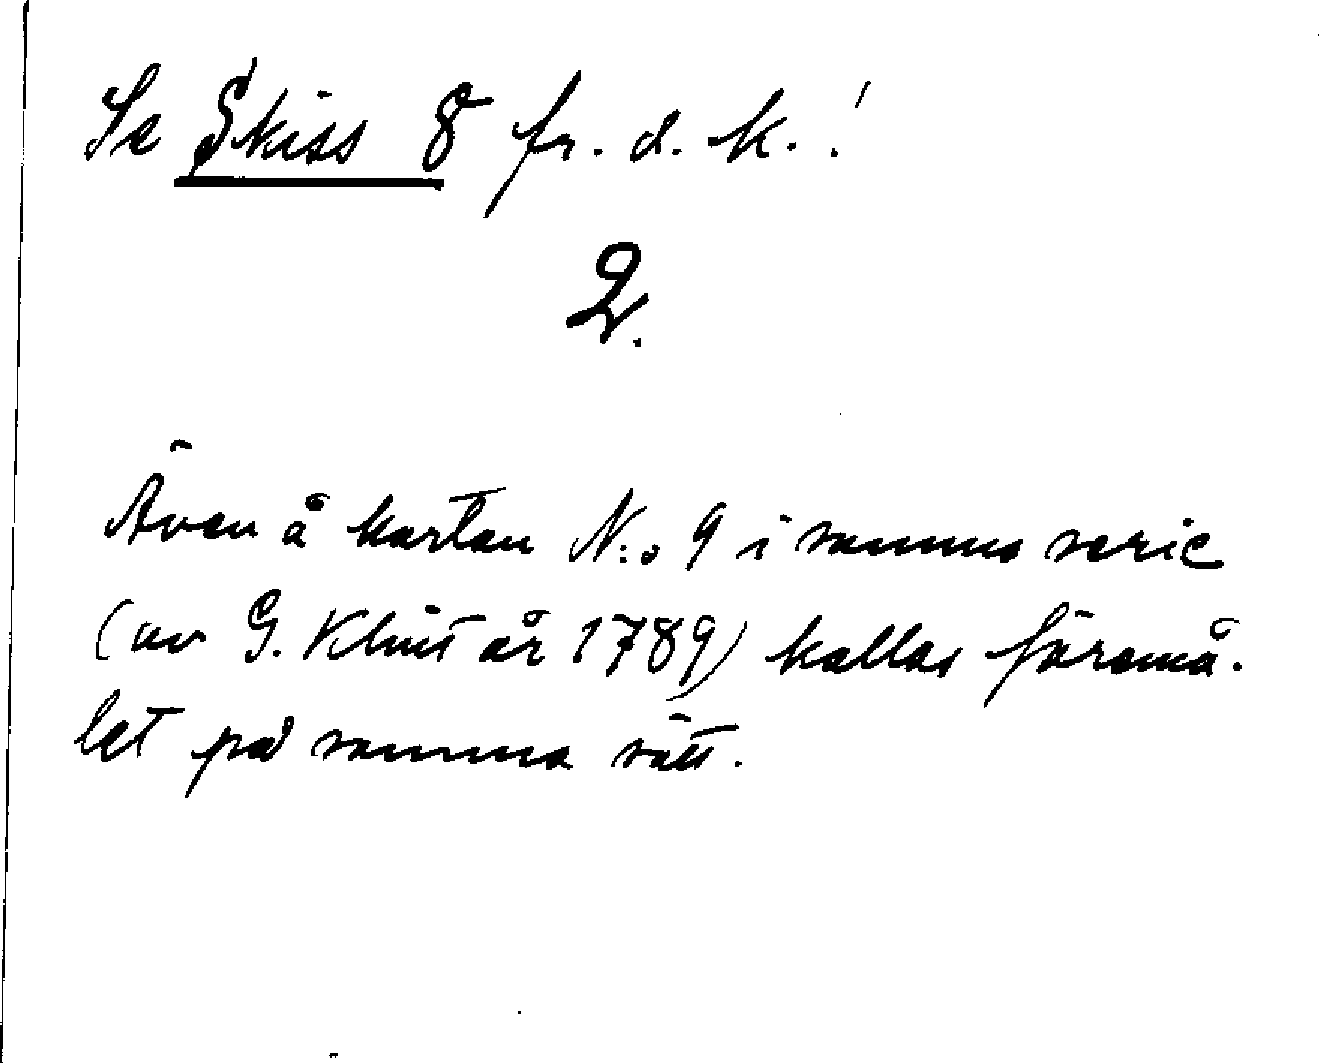 Se Skiss 8 fr. d. k.!
2.
Även å kartan N:o 9 i samma serie
(av G. Klint år 1789) kallas föremå-
let på samma sätt.